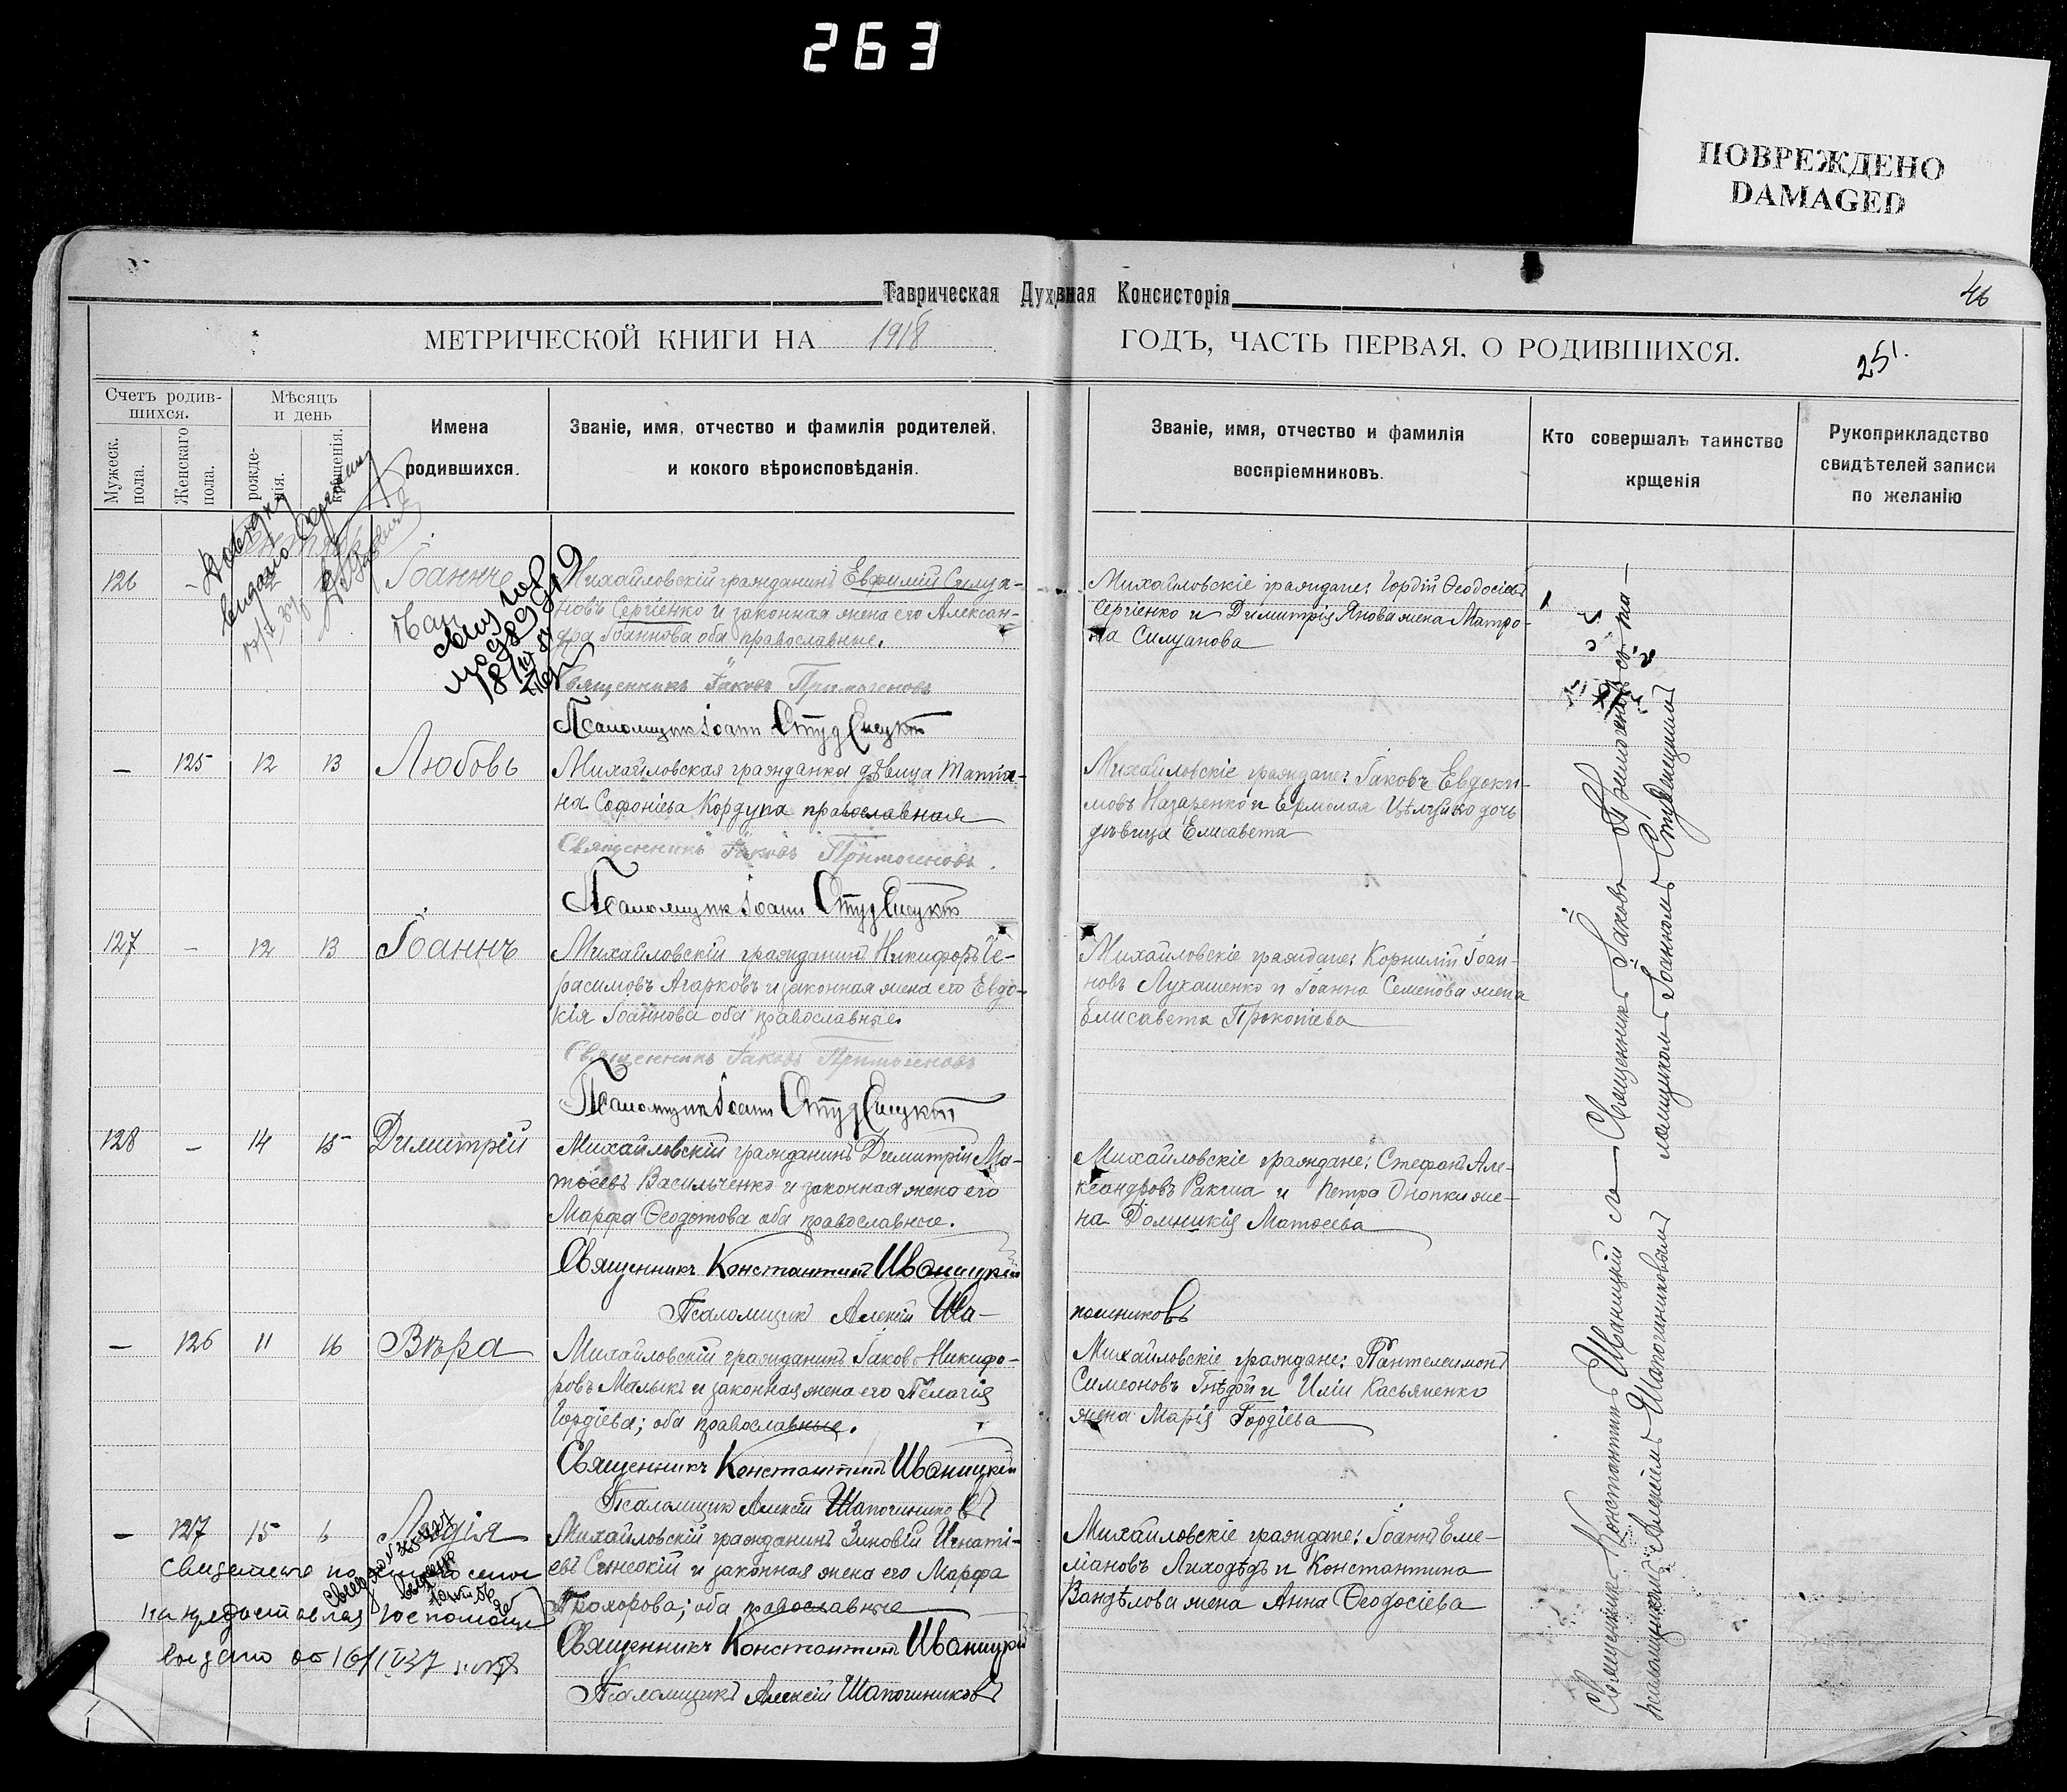 263
ПОВРЕЖДЕНО
DAMAGED
Таврическая Духовная Консисторія
46
МЕТРИЧЕСКОЙ КНИГИ НА 1918 ГОДЪ, ЧАСТЬ ПЕРВАЯ, О РОДИВШИХСЯ.
251.
Счетъ родив-
шихся.
Мужеск.
пола.
Женскаго
пола.
Мѣсяцъ
и день
рожде-
нія.
крещенія.
Имена
родившихся.
Званіе, имя, отчество и фамилія родителей,
и кокого вѣроисповѣданія.
Званіе, имя, отчество и фамилія
воспріемниковъ.
Кто совершалъ таинство
крщенія
Рукоприкладство
свидѣтелей записи
по желанію
126
Іоаннъ
Иван
Михайловскій гражданинъ Евфимій Силуа-
новъ Сергіенко и законная жена его Алексан-
дра Іоаннова оба православные.
Священникъ Іаковъ Примогеновъ
Псаломщик Іоанн
Михайловскіе граждане: Гордій Ѳеодосіевъ
Сергіенко и Димитрія Янова жена Матро-
на Силуанова
— 125 12 13 Любовь
Михайловская гражданка дѣвица Татіа-
на Софоніева Кордупа православная
Священникъ Іаковъ Примогеновъ.
Псаломщик Іоанн
Михайловскіе граждане: Іаковъ Евдоки-
мовъ Назаренко и Ермолая дочь
дѣвица Елисавета
127 — 12 13 Іоаннъ
Михайловскій гражданинъ Никифоръ Ге-
расимовъ Агарковъ и законная жена его Евдо-
кія Іоаннова оба православные.
Священникъ Іаковъ Примогеновъ
Псаломщик Іоанн
Михайловскіе граждане: Корнилій Іоан-
новъ Лукашенко и Іоанна Семенова жена
Елисавета Прокопіева
128 — 14 15 Димитрій
Михайловскій гражданинъ Димитрій Ма-
тѳеевъ Васильченко и законная жена его
Марфа Ѳеодотова оба православные.
Священникъ Константинъ Иваницкій
Псаломщикъ Алексій Ша-
пошниковъ
Михайловскіе граждане: Стефанъ Але-
ксандровъ Ракша и Петра Онопки же-
на Домникія Матѳеева
— 126 11 16 Вѣра
Михайловскій гражданинъ Іаковъ Никифо-
ровъ Малыкъ и законная жена его Пелагія
Гордіева; оба православные.
Священникъ Константинъ Иваницкій
Псаломщик Алексій Шапошниковъ
Михайловскіе граждане: Пантелеимонъ
Симеоновъ Гнѣдой и Иліи Касьяненко
жена Марія Гордіева
— 127 15 Лидія
Михайловскій гражданинъ Зиновій Игнаті-
евъ Синеокій и законная жена его Марфа
Прохорова; оба православные
Священникъ Константинъ Иваницкій
Псаломщикъ Алексій Шапошниковъ
Михайловскіе граждане: Іоаннъ Еме-
ліановъ Лиходѣдъ и Константина
жена Анна Ѳеодосіева
Священникъ Константинъ Иваницкій
псаломщикомъ Алексѣемъ Шапошниковымъ
Священникъ Іаковъ Примогеновъ